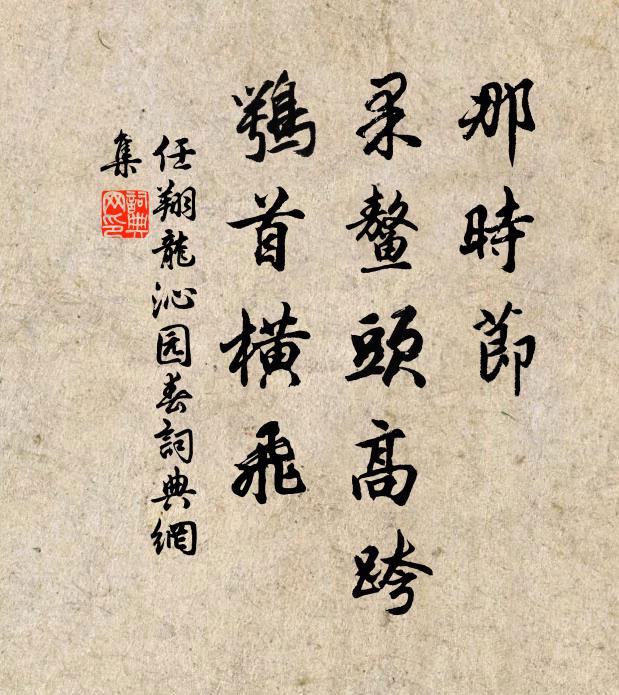 那時節
果鰲頭高跨
鶚首橫飛
任翔龍沁园春詞典網
集
詞典
网印